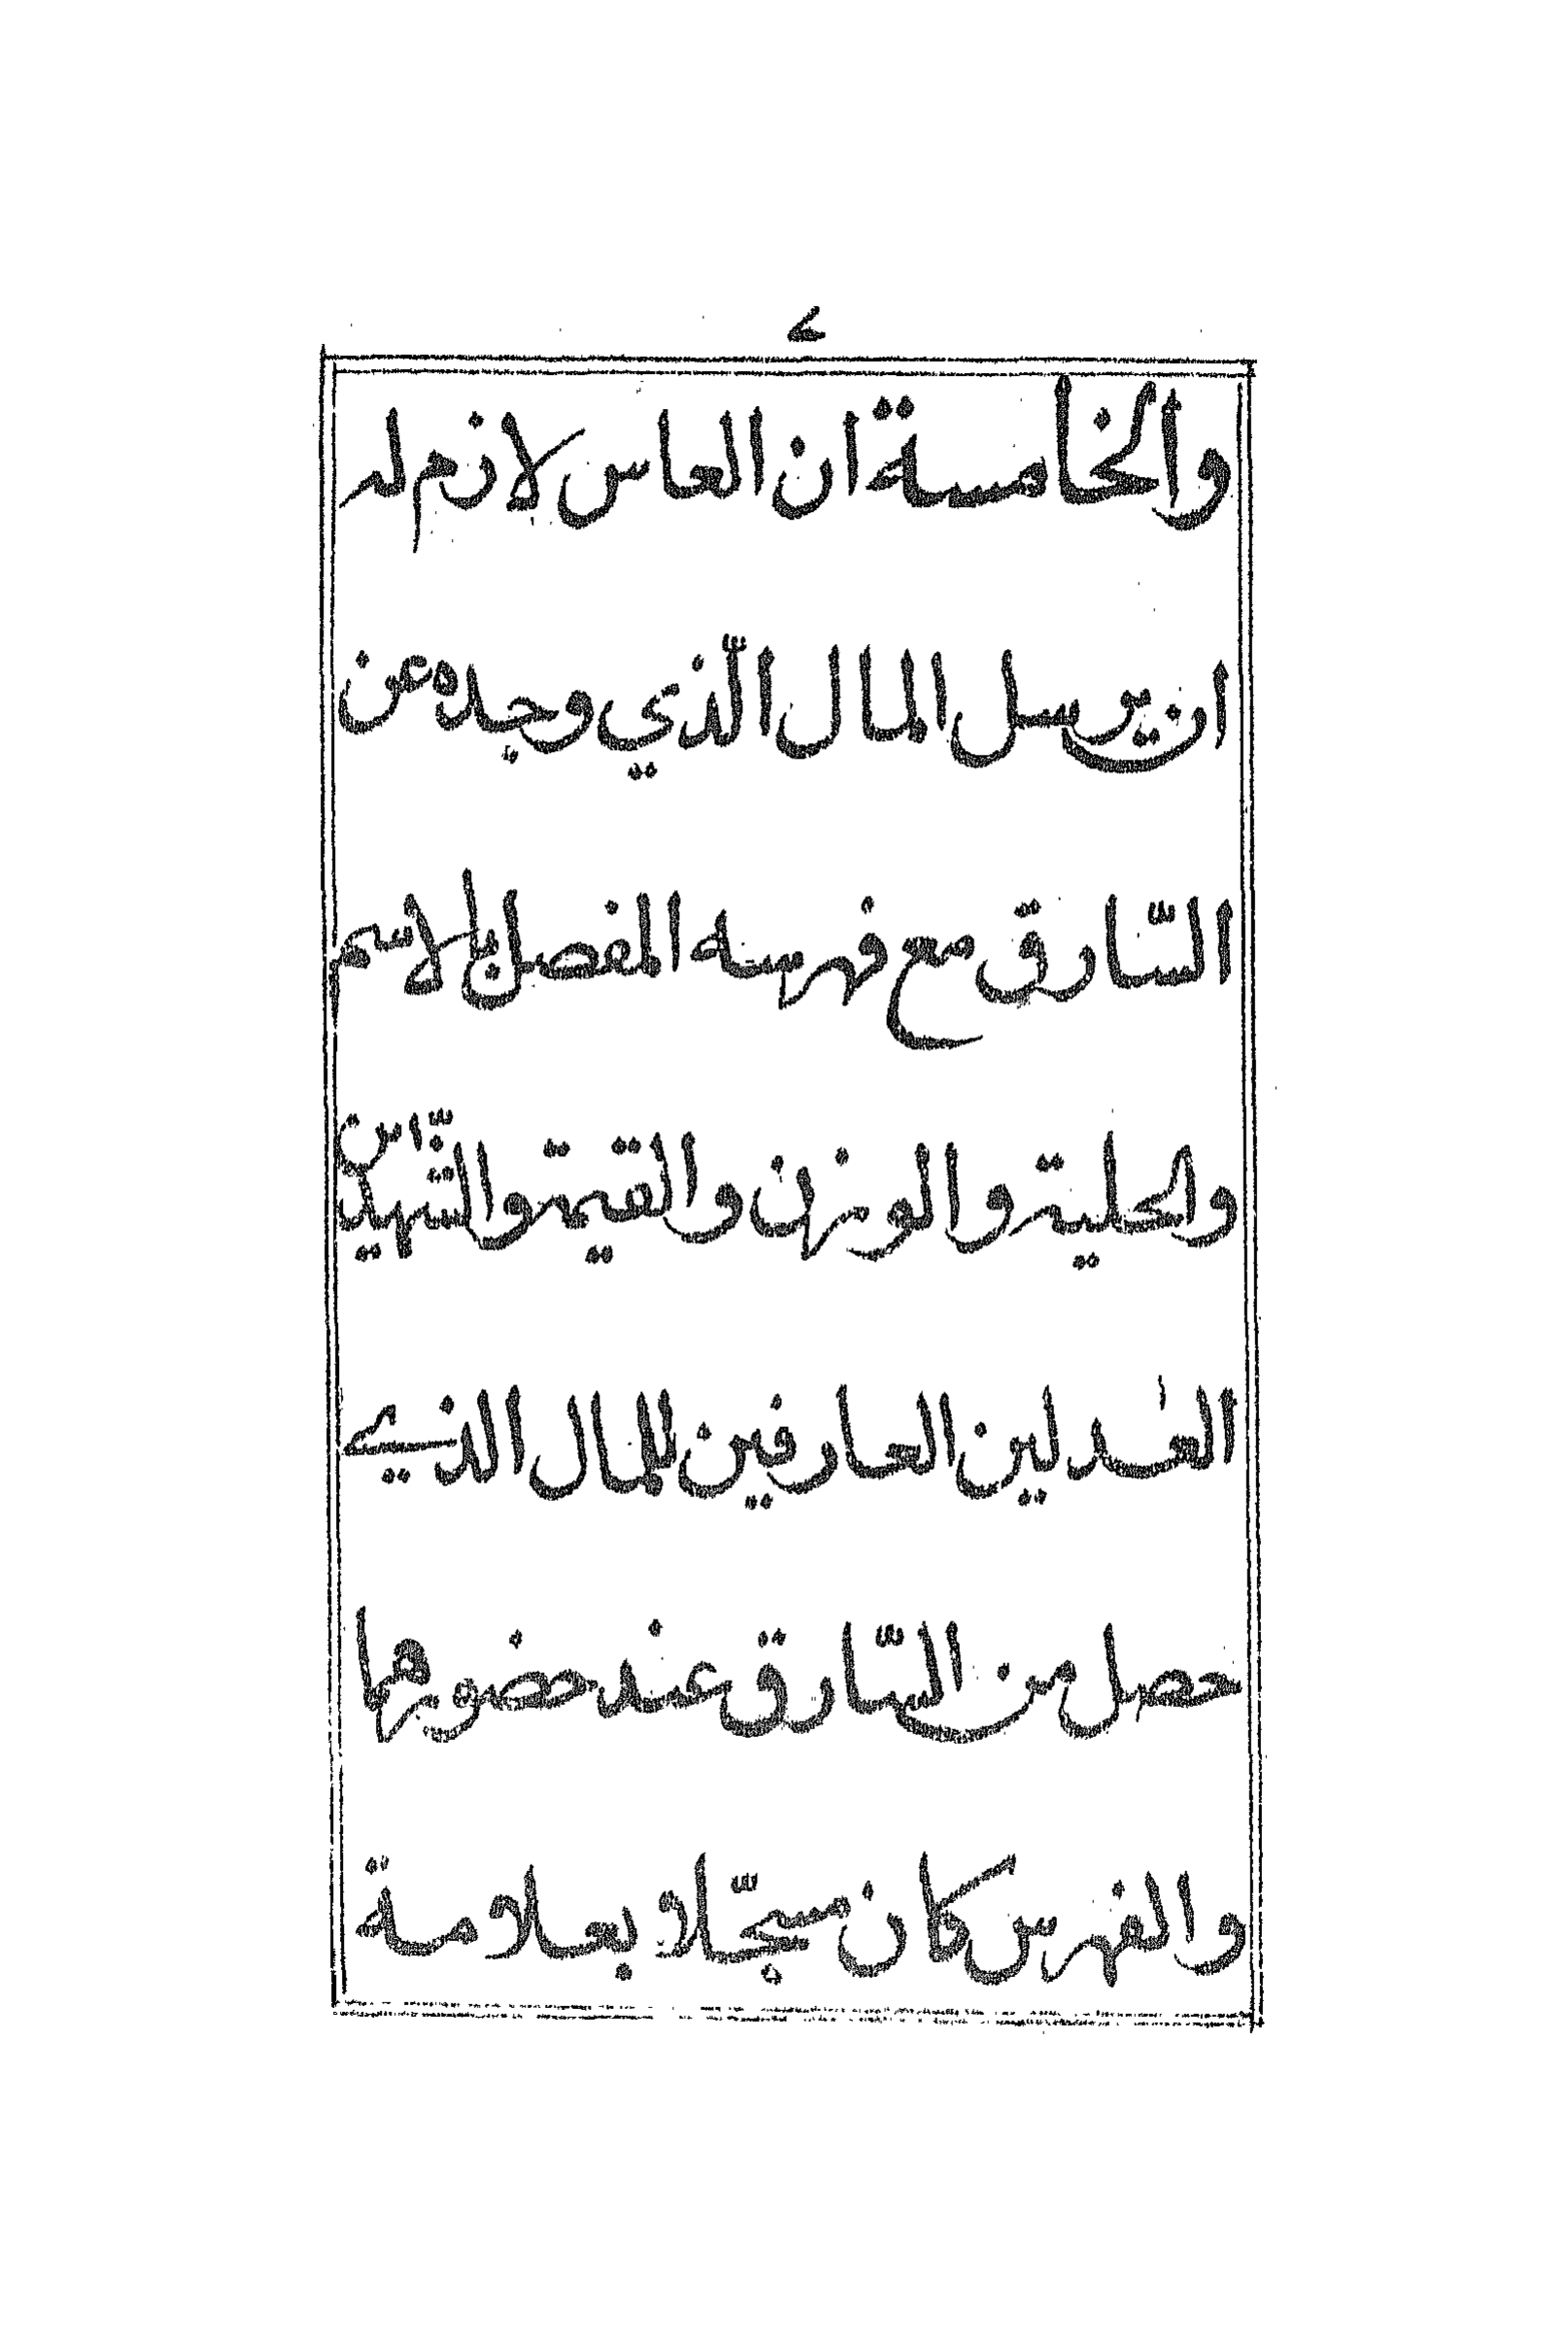 ۷
والخامسة ان العاس لازم له
ان يرسل المال الّذي وجده عن
السّارق مع فهرسه المفصل بالاسم
والحلية والوزن والقيمة والشهيدين
العدلين العارفين للمال الذي
حصل من السّارق عند حضورهما
والفهرس كان مسجّلا بعلامة